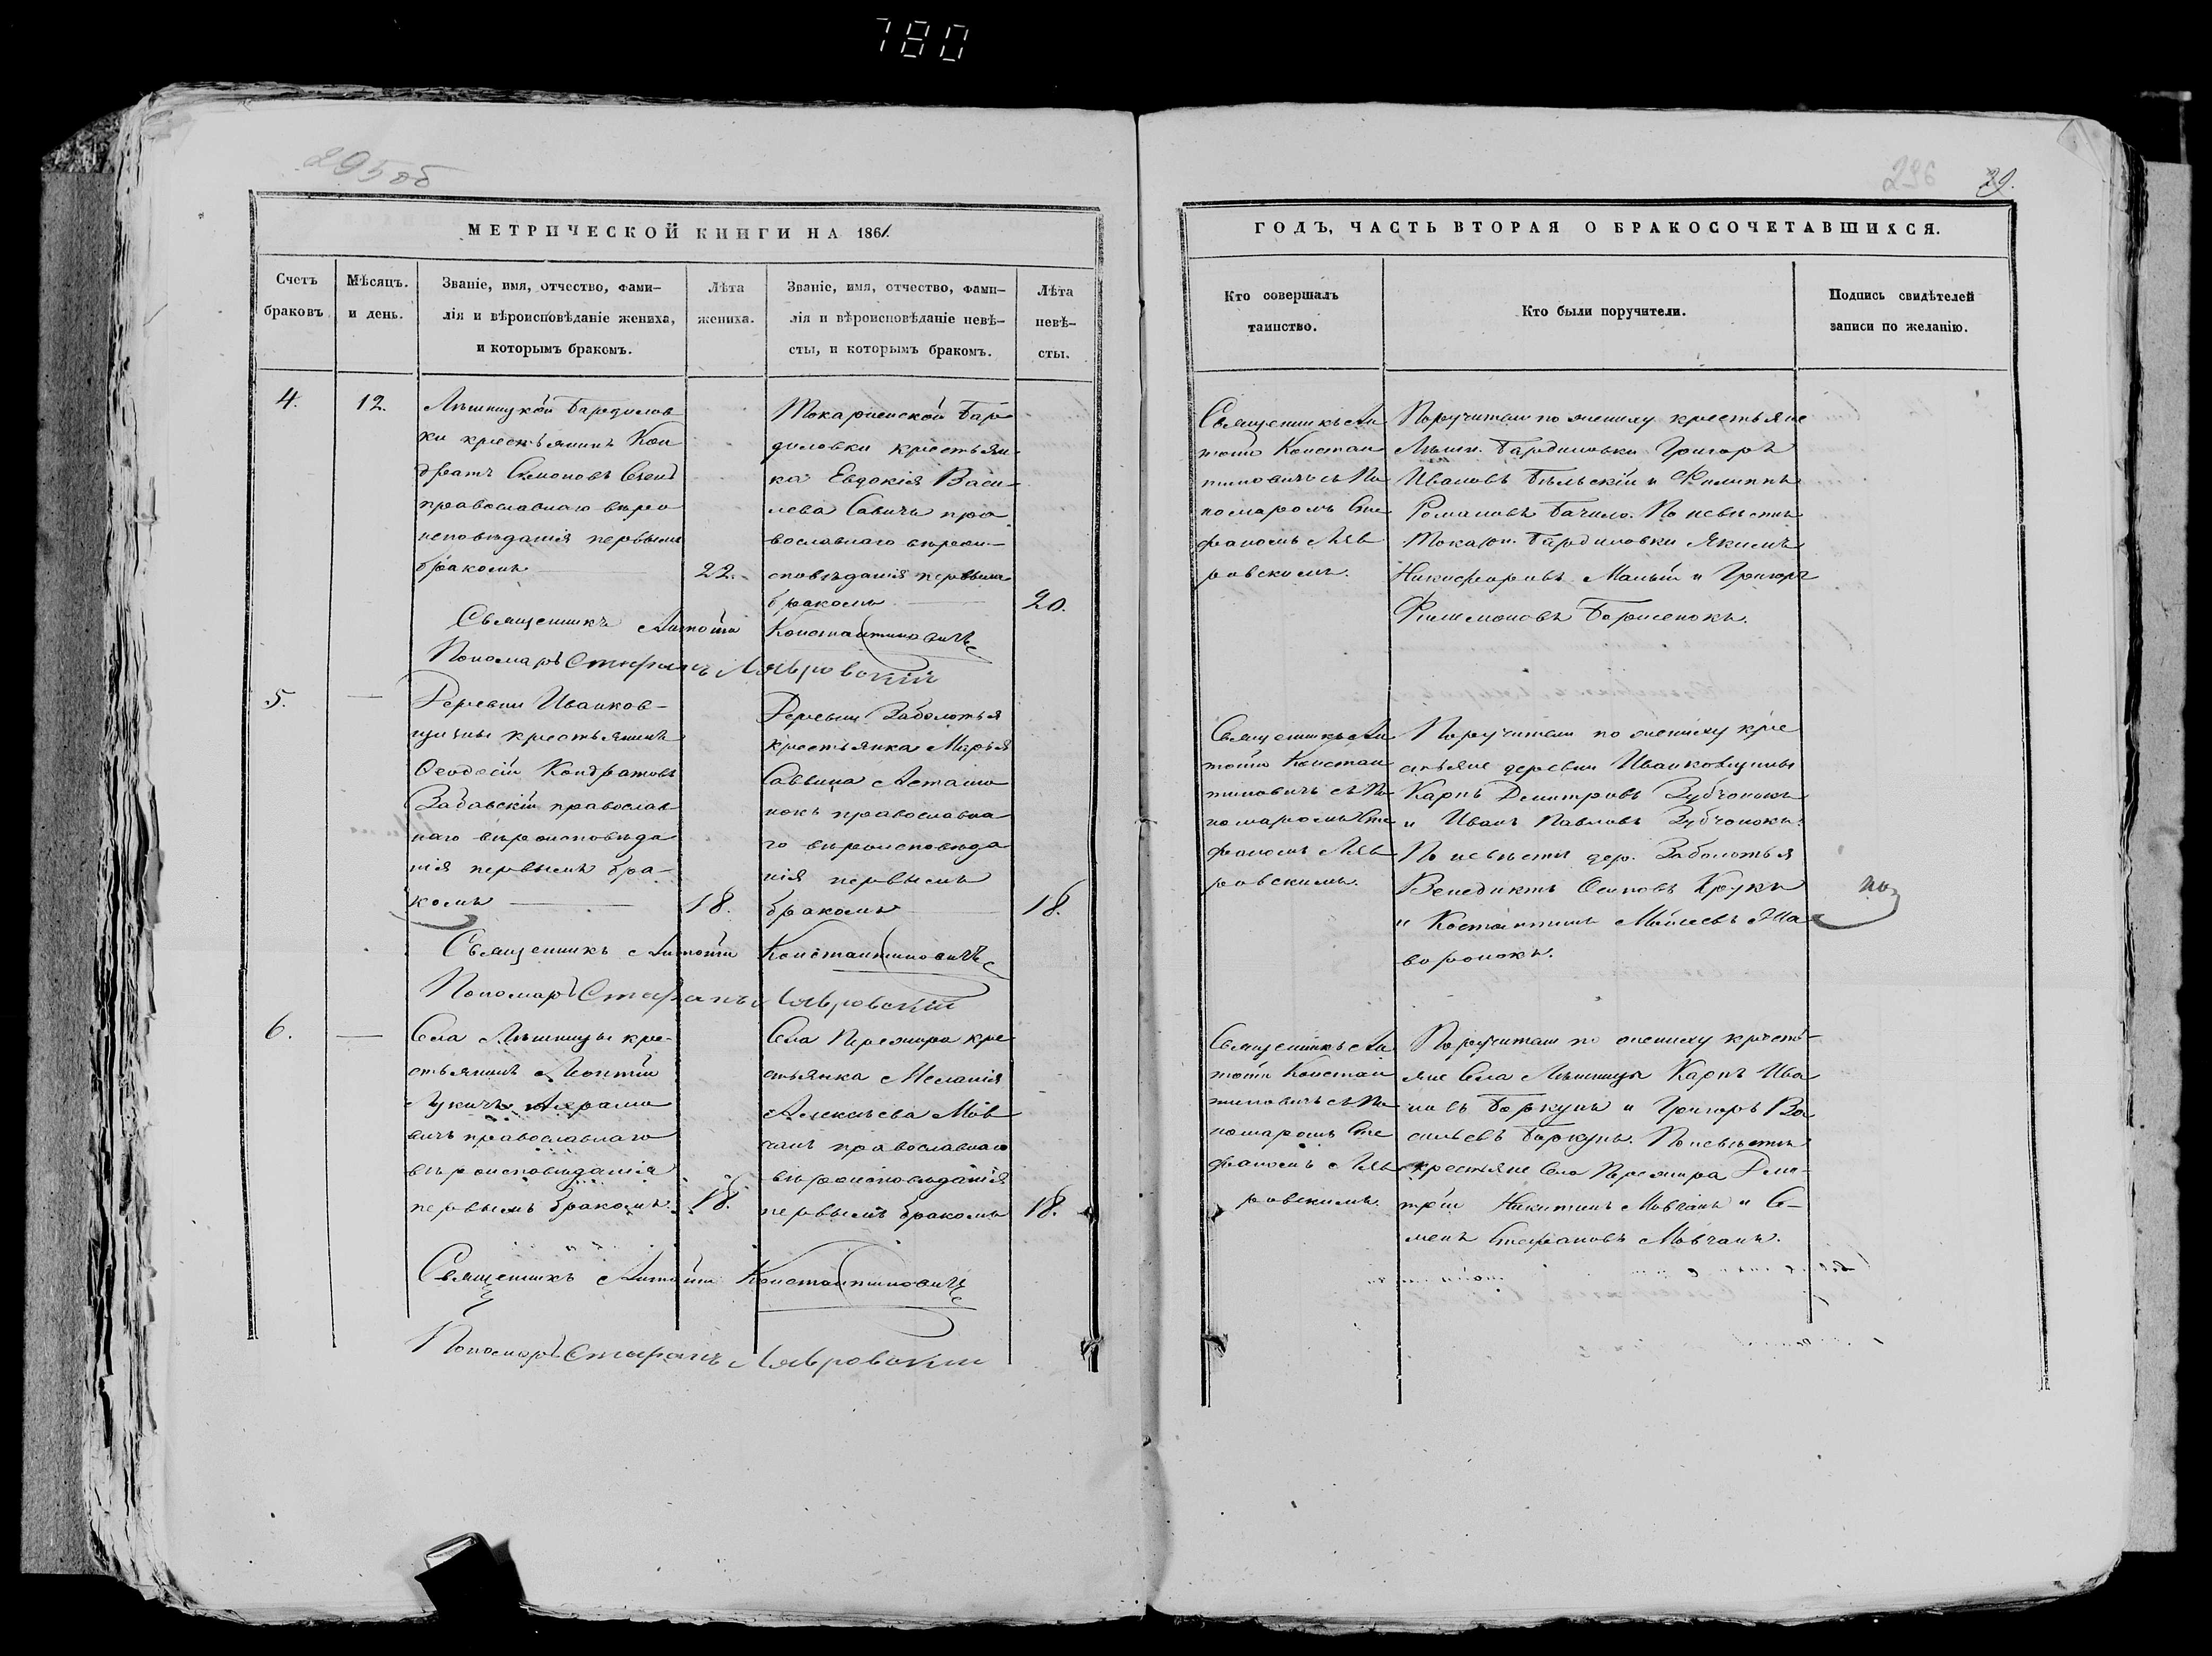 780
295 об
МЕТРИЧЕСКОЙ КНИГИ НА 1861
Счетъ
браковъ
Мѣсяцъ.
и день.
Званіе, имя, отчество, фами-
лія и вѣроисповѣданіе жениха,
и которымъ бракомъ.
Лѣта
жениха.
Званіе, имя, отчество, фами-
лія и вѣроисповѣданіе невѣ-
сты, и которымъ бракомъ.
Лѣта
невѣ-
сты.
4.
12.
крестьянинъ Кон
дратъ Симоновъ
православнаго вѣро
исповѣданія первымъ
бракомъ
22.
Токариенской Бар
диловки крестьян
ка Евдокія Васи-
лева Савичъ пра
вославнаго вѣрои-
сповѣданія первымъ
бракомъ
20.
Священникъ Антоній Константиновичъ
Пономарь Стефанъ Лявровскій
5.
—
Деревни Иванков-
щины крестьянинъ
Ѳеодосій Кондратовъ
Забавскій православ
наго вѣроисповѣда
нія первымъ бра-
комъ
18.
Деревни Заболотья
крестьянка Марья
Саввина Асташо
нокъ православна
го вѣроисповѣда
нія первымъ
бракомъ
18.
Священникъ Антоній Константиновичъ
Пономарь Стефанъ Лявровскій
6.
—
Села Лѣшницы кре-
стьянинъ Леонтій
Лукичъ Ахрамо
вичъ православнаго
вѣроисповѣданія
первымъ бракомъ.
18.
Села Пережира кре
стьянка Меланія
Алексѣева Мов
чанъ православнаго
вѣроисповѣданія
первымъ бракомъ
18.
Священникъ Антоній Константиновичъ
Пономарь Стефанъ Лявровскій
296
29.
ГОДЪ, ЧАСТЬ ВТОРАЯ О БРАКОСОЧЕТАВШИХСЯ.
Кто совершалъ
таинство.
Кто были поручители.
Подпись свидѣтелей
записи по желанію.
Священникъ Ан
тоній Констан
тиновичъ съ По
номаромъ Сте
фаномъ Ляв
ровскимъ.
Поручители по жениху крестьяне
Лѣшн. Бардиловки Григорѣ
Ивановъ Бѣльскій и Филиппъ
Романовъ Бачило. По невѣстѣ
Токарн. Бардиловки Якимъ
Никифоровъ Малый и Григорѣ
Филимоновъ Борисенокъ.
Священникъ Ан
тоній Констан
тиновичъ съ По
номаромъ Сте
фаномъ Ляв
ровскимъ.
Поручители по жениху кре
стьяне деревни Иванковщины
Карпъ Демитровъ Зубчонокъ
и Иванъ Павловъ Зубчонокъ.
По невѣстѣ дер. Заболотья
Венедиктъ Осиповъ Крукъ
и Костантинъ Моисеевъ
воронокъ.
Священникъ Ан
тоній Констан
тиновичъ съ По
номаромъ Сте
фаномъ Ляв
ровскимъ.
Поручители по жениху кресть-
яне Села Лѣшницы Карпъ Ива
новъ Боркунъ и Григорѣ Ва
сильевъ Боркунъ. По невѣстѣ
крестьяне Села Пережира Дми-
трій Никитинъ Мовчанъ и Се-
менъ Стефановъ Мовчанъ.